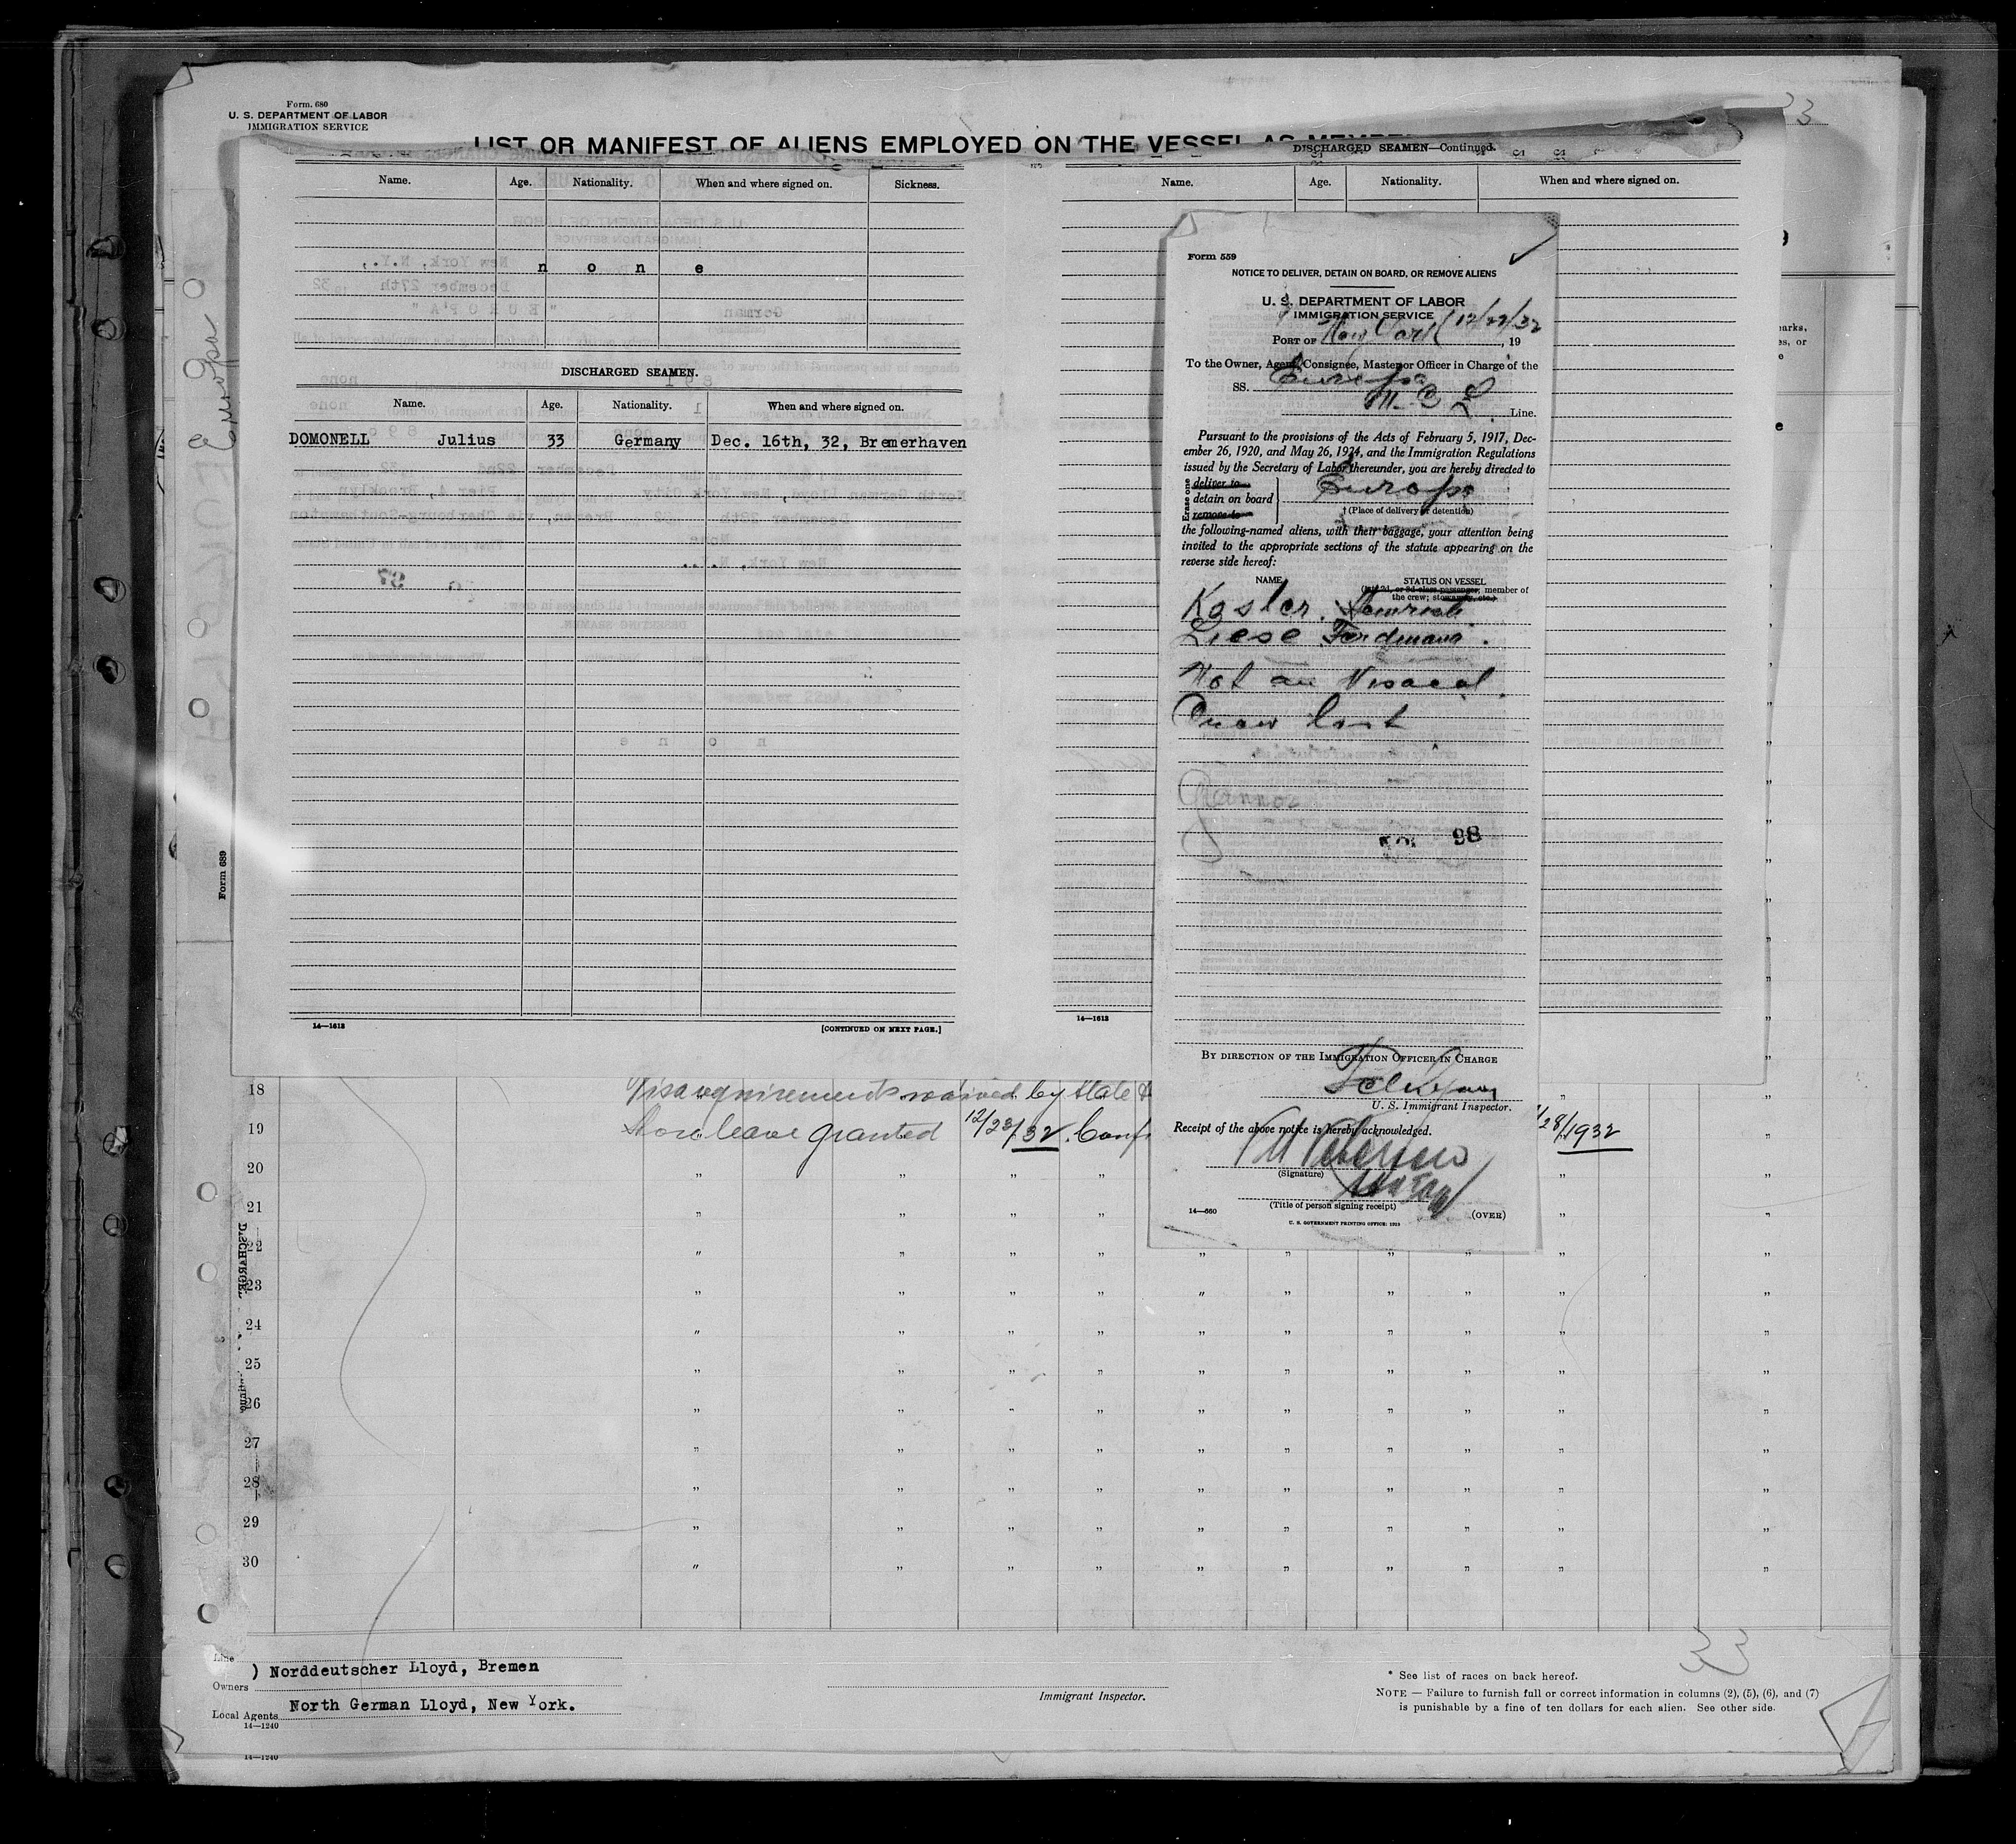 Form. 680
U. S. DEPARTMENT OF LABOR
IMMIGRATION SERVICE
LIST OR MANIFEST OF ALIENS EMPLOYED ON THE VESSEL AS
33
Name. Age. Nationality. When and where signed on. Sickness.
n o n e
DISCHARGED SEAMEN.
Name. Age. Nationality. When and where signed on.
DOMONELL Julius 33 Germany Dec. 16th, 32, Bremerhaven
14—1613 [CONTINUED ON NEXT PAGE.]
Form 689
Europa
DISCHARGED SEAMEN—Continued.
Name. Age. Nationality. When and where signed on.
14—1613
Form 559
NOTICE TO DELIVER, DETAIN ON BOARD, OR REMOVE ALIENS
U. S. DEPARTMENT OF LABOR
IMMIGRATION SERVICE
PORT OF New York 12/22/32, 19
To the Owner, Agent, Consignee, Master or Officer in Charge of the
SS. Europa
Line.
Pursuant to the provisions of the Acts of February 5, 1917, Dec-
ember 26, 1920, and May 26, 1924, and the Immigration Regulations
issued by the Secretary of Labor thereunder, you are hereby directed to
Erase one
deliver to
detain on board Europa
remove to
† (Place of delivery or detention)
the following-named aliens, with their baggage, your attention being
invited to the appropriate sections of the statute appearing on the
reverse side hereof:
NAME STATUS ON VESSEL
(1st, 2d, or 3d class passenger, member of
the crew; stowaway, etc.)
Kosler
Liese Ferdinand.
Not on Visaed
Crew List
98
BY DIRECTION OF THE IMMIGRATION OFFICER IN CHARGE
U. S. Immigrant Inspector.
Receipt of the above notice is hereby acknowledged.
(Signature)
(Title of person signing receipt)
14—660 (OVER)
U. S. GOVERNMENT PRINTING OFFICE: 1925
18 Visa requirements waived by State
19 Shore leave granted 12/23/32. 28/1932
20 " " " " " " " " " "
21 " " " " " "
22 " " " " " " " " " "
23 " " " " " " " " " "
24 " " " " " " " " " "
25 " " " " " " " " " "
26 " " " " " " " " " "
27 " " " " " " " " " "
28 " " " " " " " " " "
29 " " " " " " " " " "
30 " " " " " " " " " "
33
Line
Owners ) Norddeutscher Lloyd, Bremen
Local Agents North German Lloyd, New York.
14—1240
14—1240
Immigrant Inspector.
* See list of races on back hereof.
NOTE — Failure to furnish full or correct information in columns (2), (5), (6), and (7)
is punishable by a fine of ten dollars for each alien. See other side.